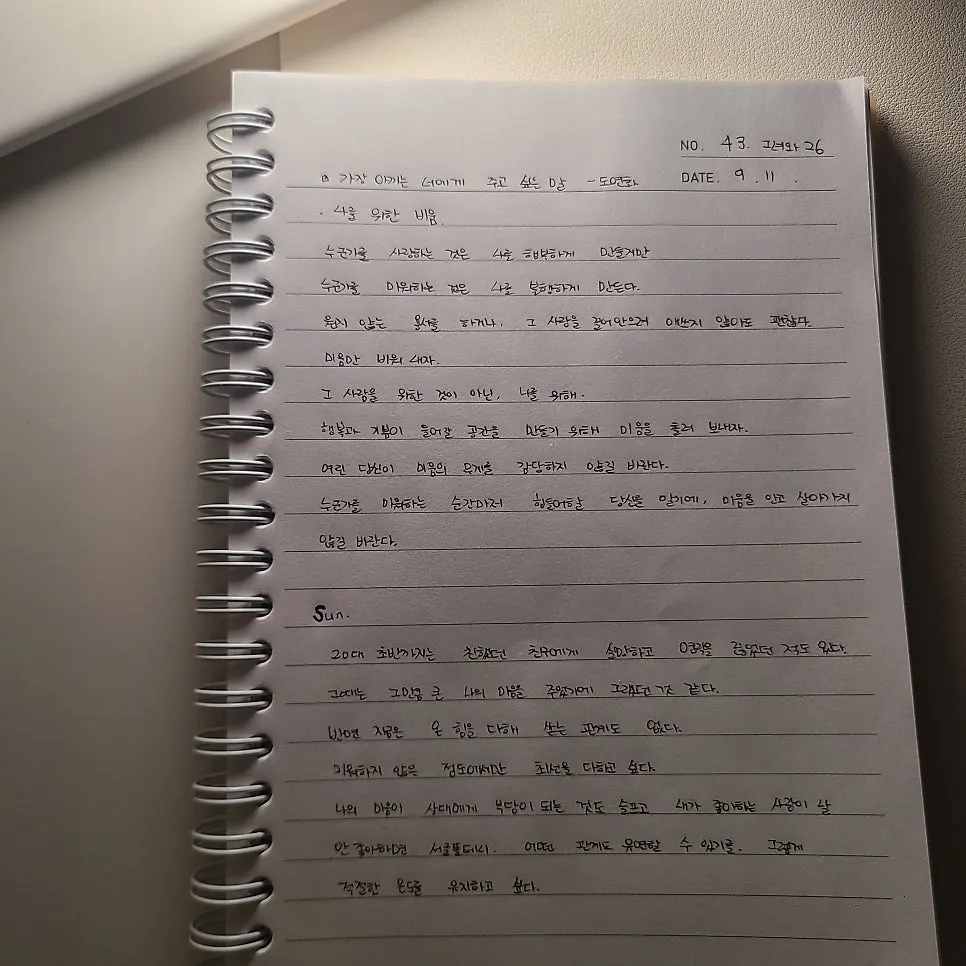 NO. 43. 그녀와 26
DATE. 9 . 11 .
가장 아끼는 너에게 주고 싶은 말 - 도연화
. 나를 위한 비움.
누군가를 사랑하는 것은 나를 행복하게 만들지만
누군가를 미워하는 것은 나를 불행하게 만든다.
원치 않는 용서를 하거나, 그 사람을 끌어안으려 애쓰지 않아도 괜찮다.
미움만 비워 내자.
그 사람을 위한 것이 아닌, 나를 위해.
행복과 기쁨이 들어갈 공간을 만들기 위해 미움을 흘려 보내자.
여린 당신이 미움의 무게를 감당하지 않길 바란다.
누군가를 미워하는 순간마저 힘들어할 당신을 알기에, 미움을 안고 살아가지
않길 바란다.
Sun.
20대 초반까지는 친했던 친구에게 실망하고 연락을 끊었던 적도 있다.
그때는 그만큼 큰 나의 마음을 주었기에 그랬던 것 같다.
반면 지금은 온 힘을 다해 쏟는 관계도 없다.
미워하지 않은 정도에서만 최선을 다하고 싶다.
나의 마음이 상대에게 부담이 되는 것도 슬프고 내가 좋아하는 사람이 날
안 좋아하면 서글플테니. 어떤 관계도 유연할 수 있기를. 그렇게
적절한 온도를 유지하고 싶다.